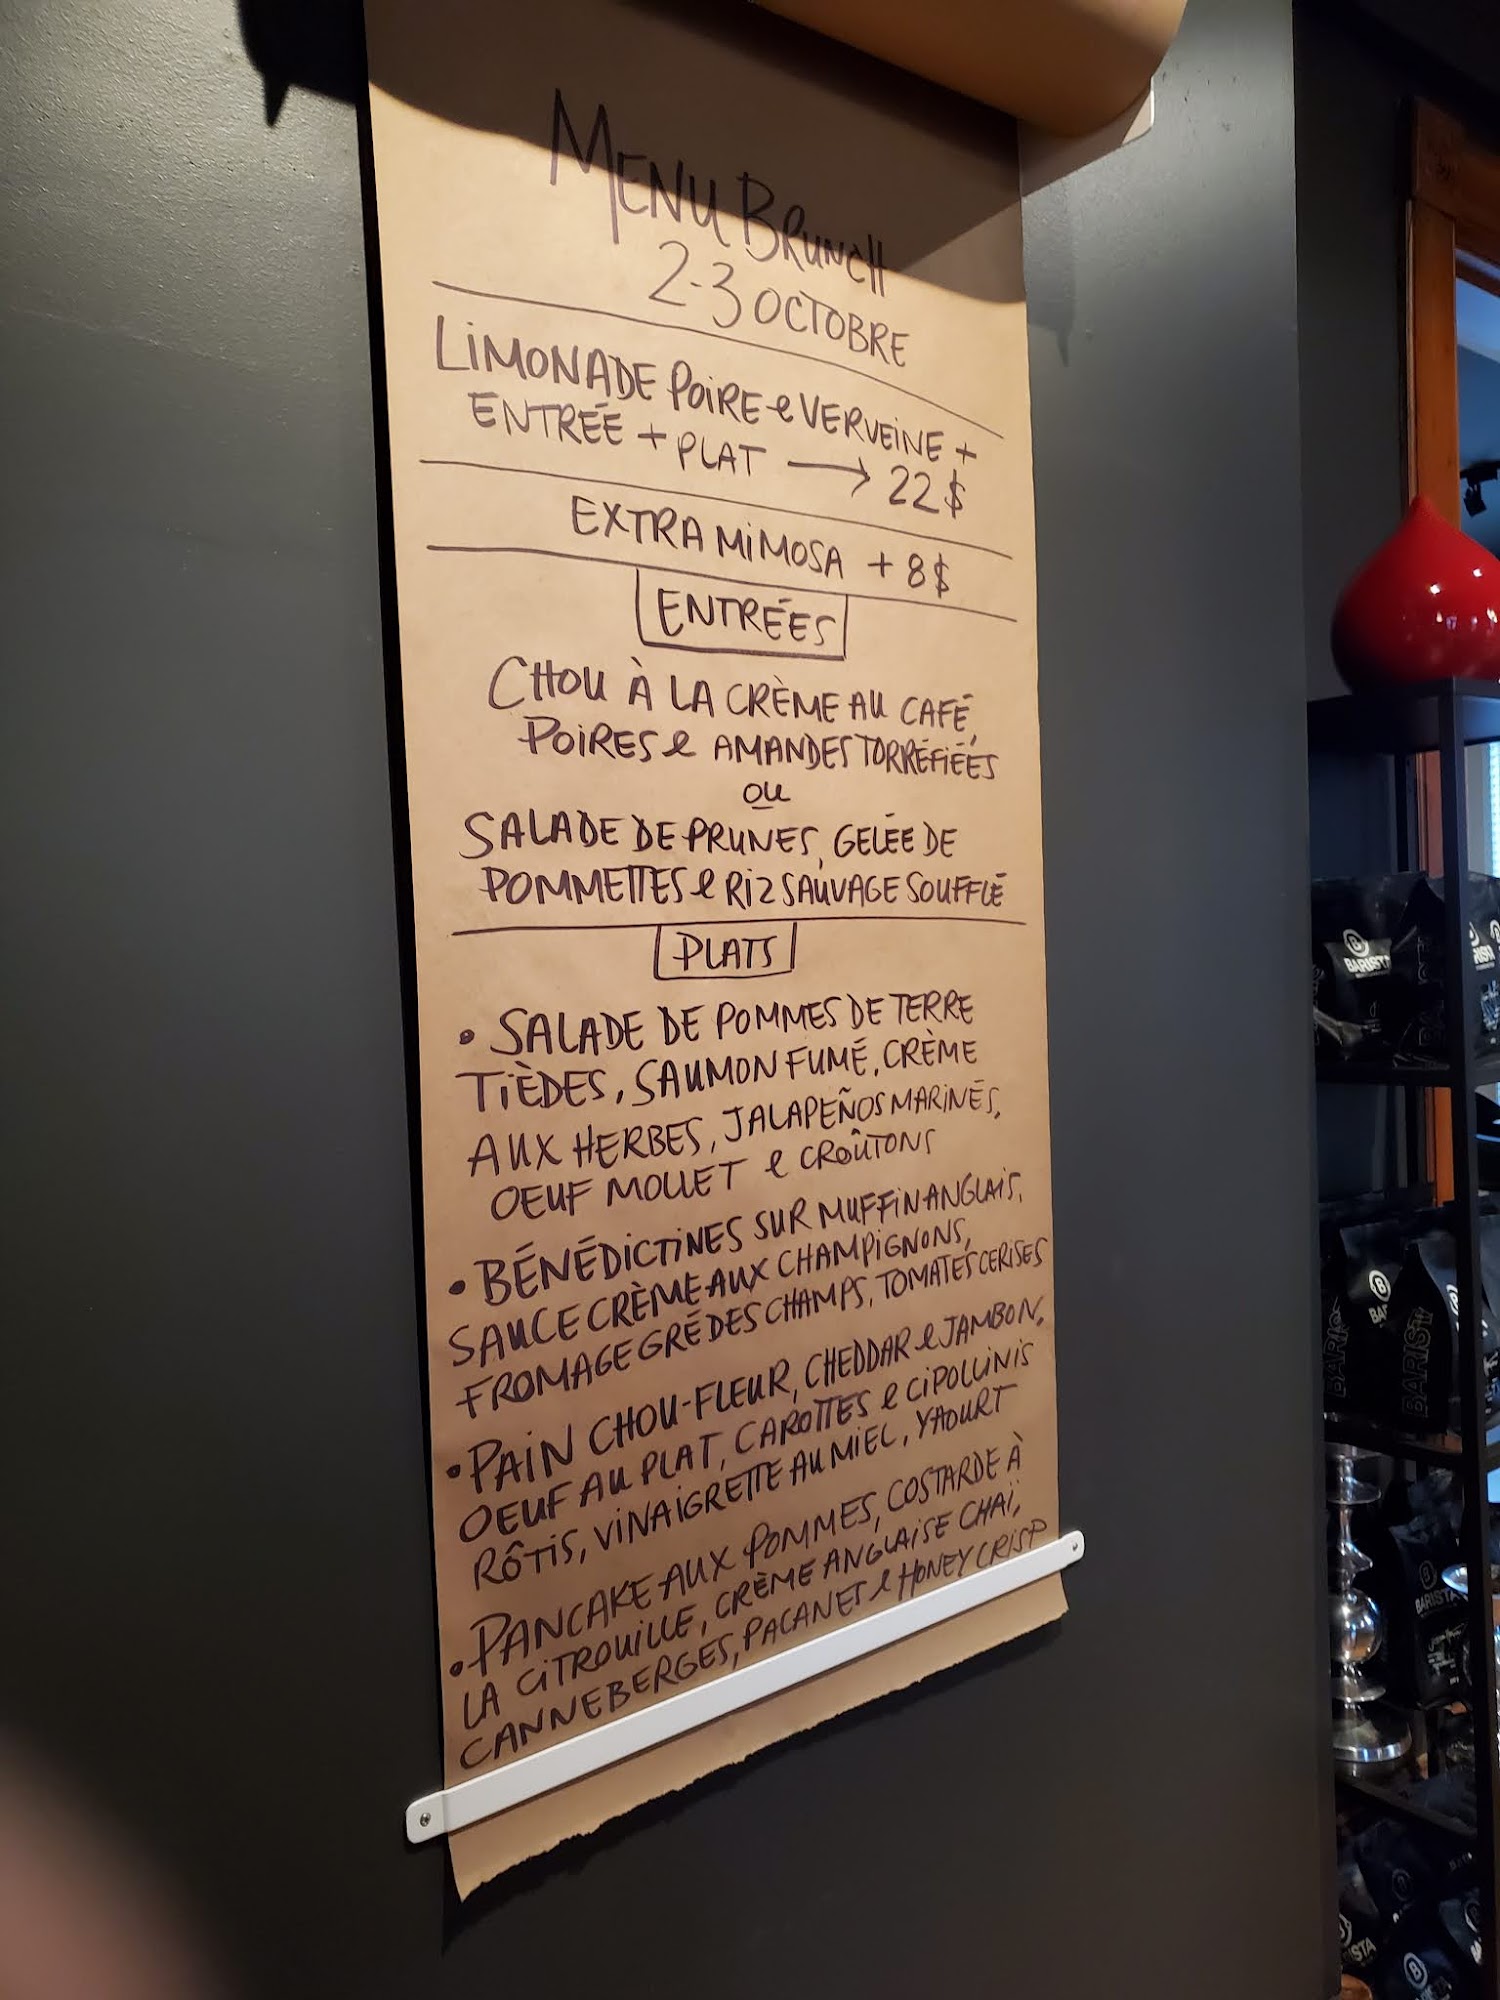 MENU BRUNCH
2-3 OCTOBRE
LIMONADE POIRE & VERVEINE +
ENTRÉE + PLAT → 22$
EXTRA MIMOSA + 8$
ENTRÉES
CHOU À LA CRÈME AU CAFÉ,
POIRES & AMANDES TORRÉFIÉES
OU
SALADE DE PRUNES, GELÉE DE
POMMETTES & RIZ SAUVAGE SOUFFLÉ
PLATS
• SALADE DE POMMES DE TERRE
TIÈDES, SAUMON FUMÉ, CRÈME
AUX HERBES, JALAPEÑOS MARINÉS,
OEUF MOLLET & CROÛTONS
• BÉNÉDICTINES SUR MUFFIN ANGLAIS,
SAUCE CRÈME AUX CHAMPIGNONS,
FROMAGE GRÉ DES CHAMPS, TOMATES CERISES
• PAIN CHOU-FLEUR, CHEDDAR & JAMBON,
OEUF AU PLAT, CAROTTES & CIPOLLINIS
RÔTIS, VINAIGRETTE AU MIEL, YAOURT
• PANCAKE AUX POMMES, COSTARDE À
LA CITROUILLE, CRÈME ANGLAISE CHAÏ,
CANNEBERGES, PACANES & HONEYCRISP
BARISTA
BARISTA
BARISTA